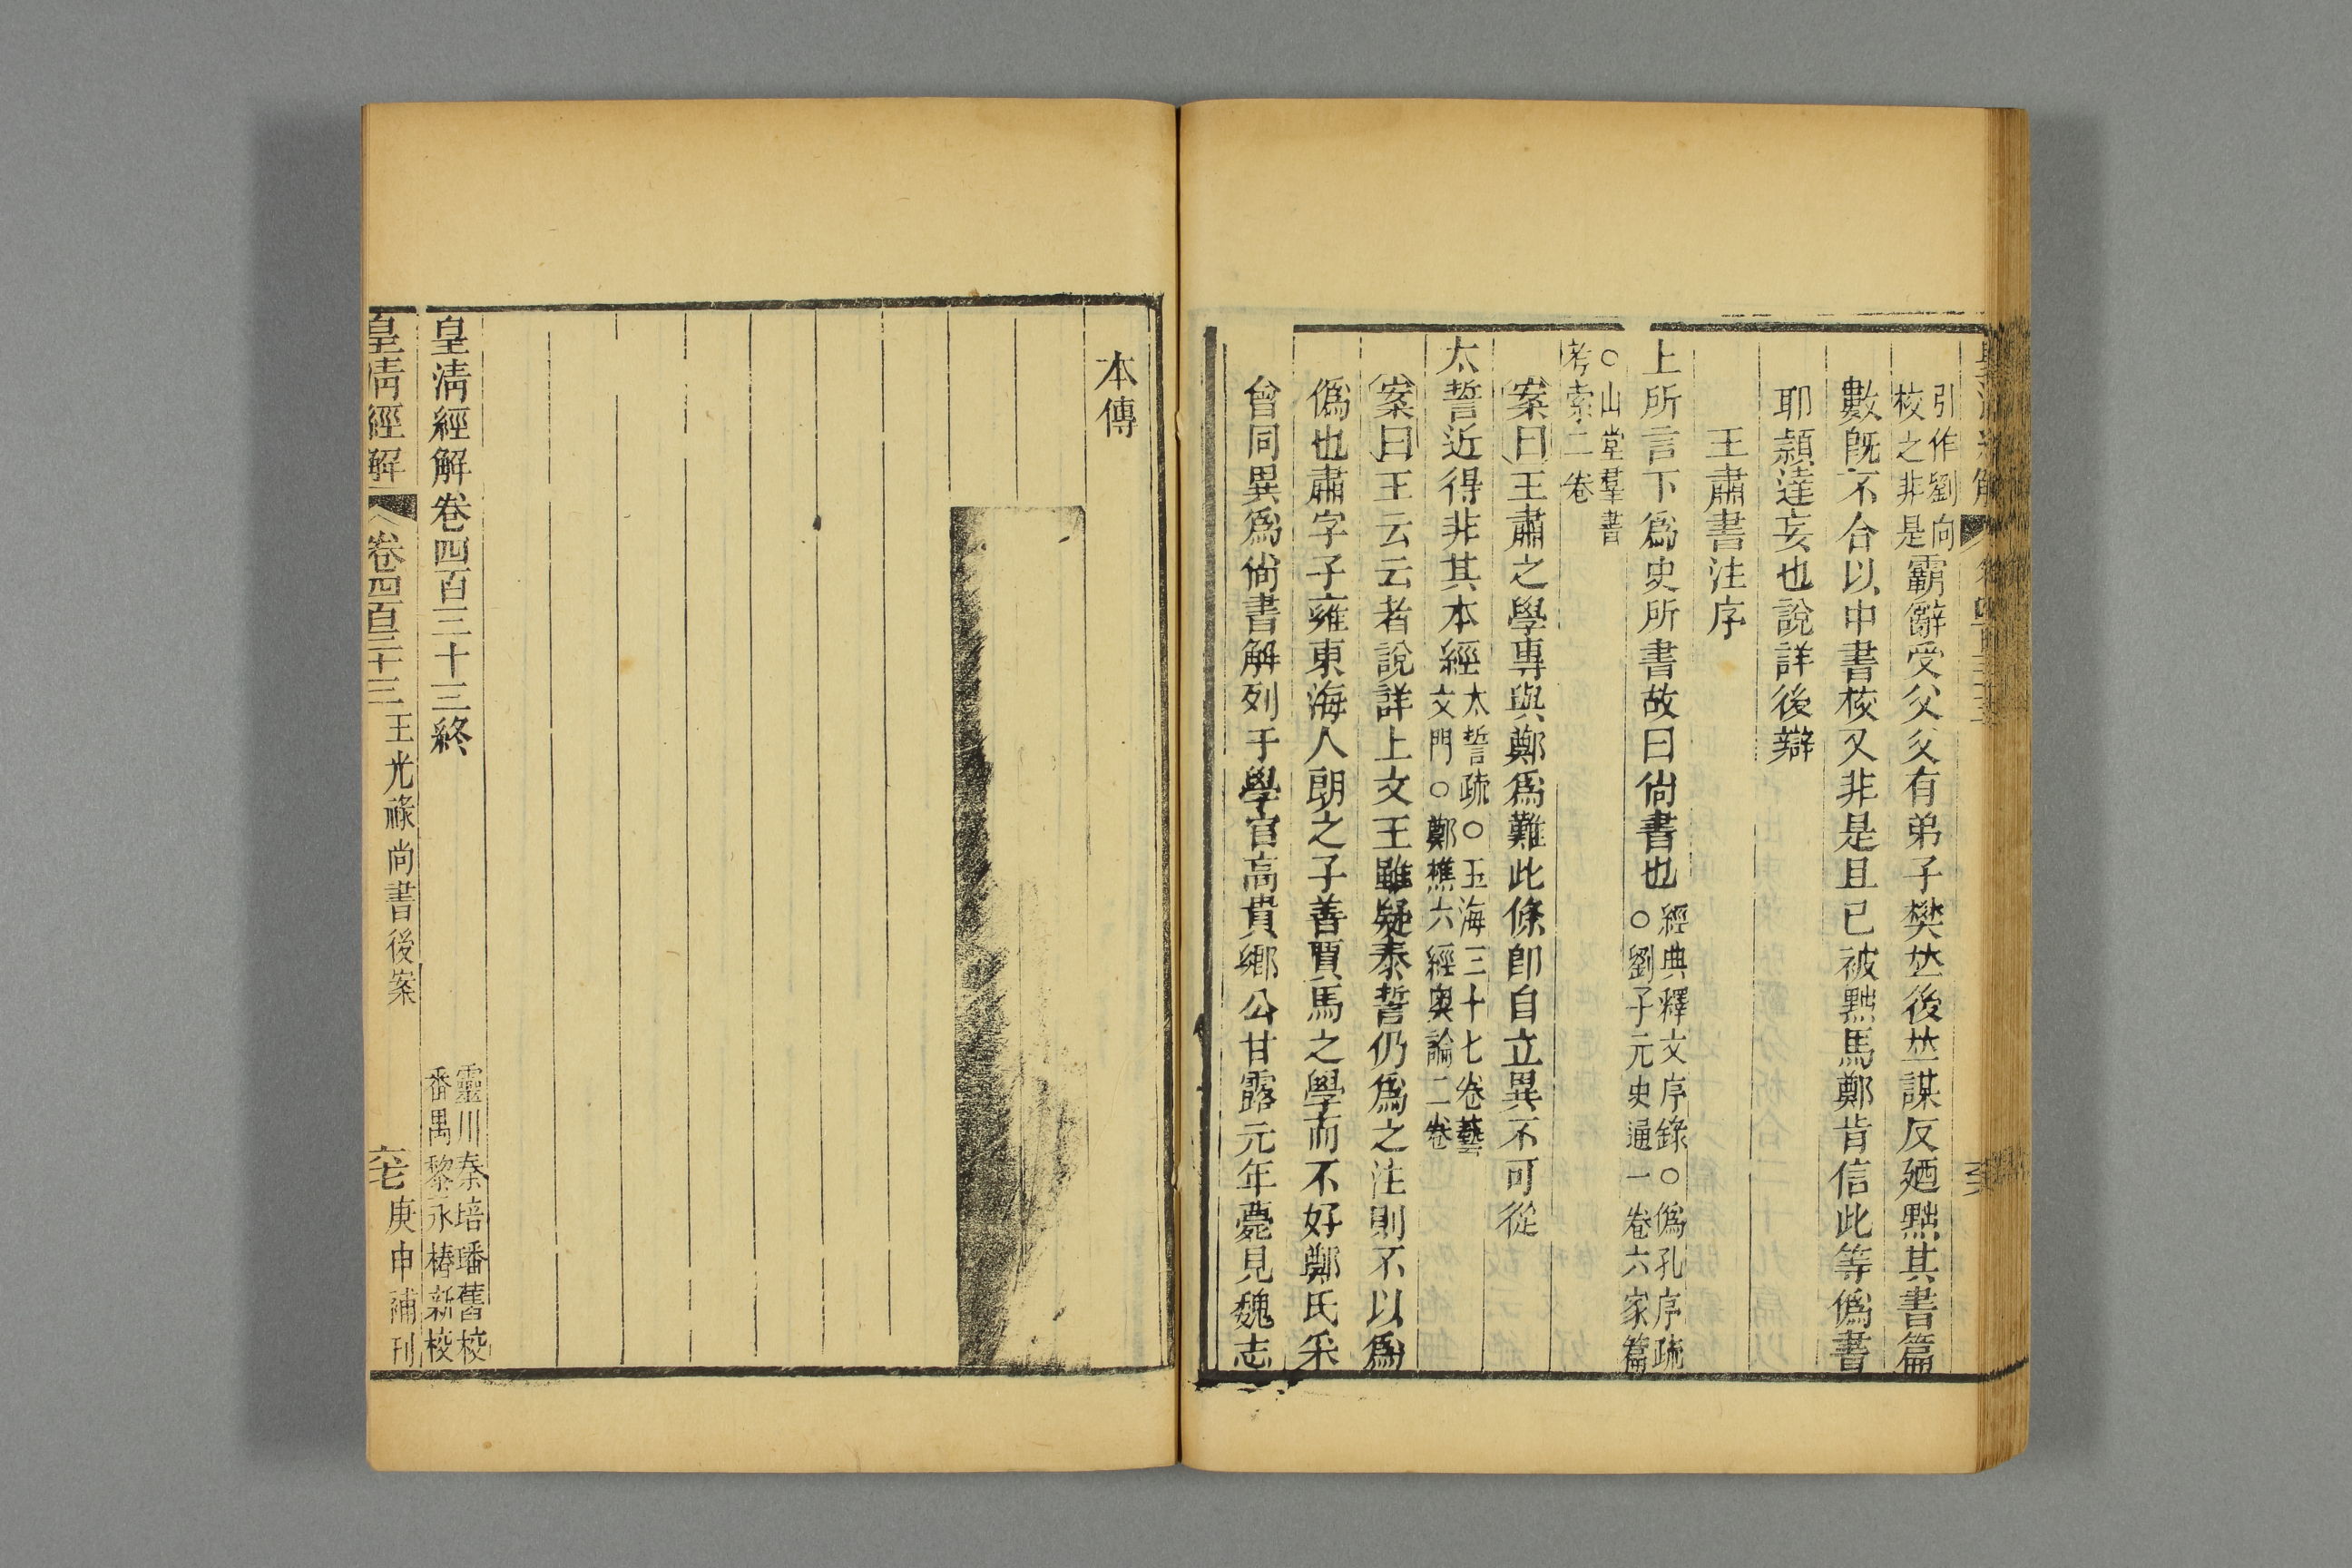 引作劉向
校之非是霸辭受父父有弟子樊並後並謀反廼黜其書篇
數旣不合以中書校又非是且已被黜馬鄭肯信此等僞書
耶頴達妄也說詳後辯
王肅書注序
上所言下爲史所書故曰尙書也經典釋文序錄○僞孔序疏
○劉子元史通一卷六家篇
○山堂羣書
考索二卷
案曰王肅之學專與鄭爲難此條卽自立異不可從
太誓近得非其本經太誓疏○玉海三十七卷藝
文門○鄭樵六經奧論二卷
案曰王云云者說詳上文王雖疑泰誓仍爲之注則不以爲
僞也肅字子雍東海人朗之子善賈馬之學而不好鄭氏采
曾同異爲尙書解列于學官高貴鄉公甘露元年薨見魏志
本傳
皇淸經解卷四百三十三終
靈川秦培璠舊校
番禺黎永椿新校
皇淸經解 卷四百三十三 王光祿尚書後案 六七 庚申補刊